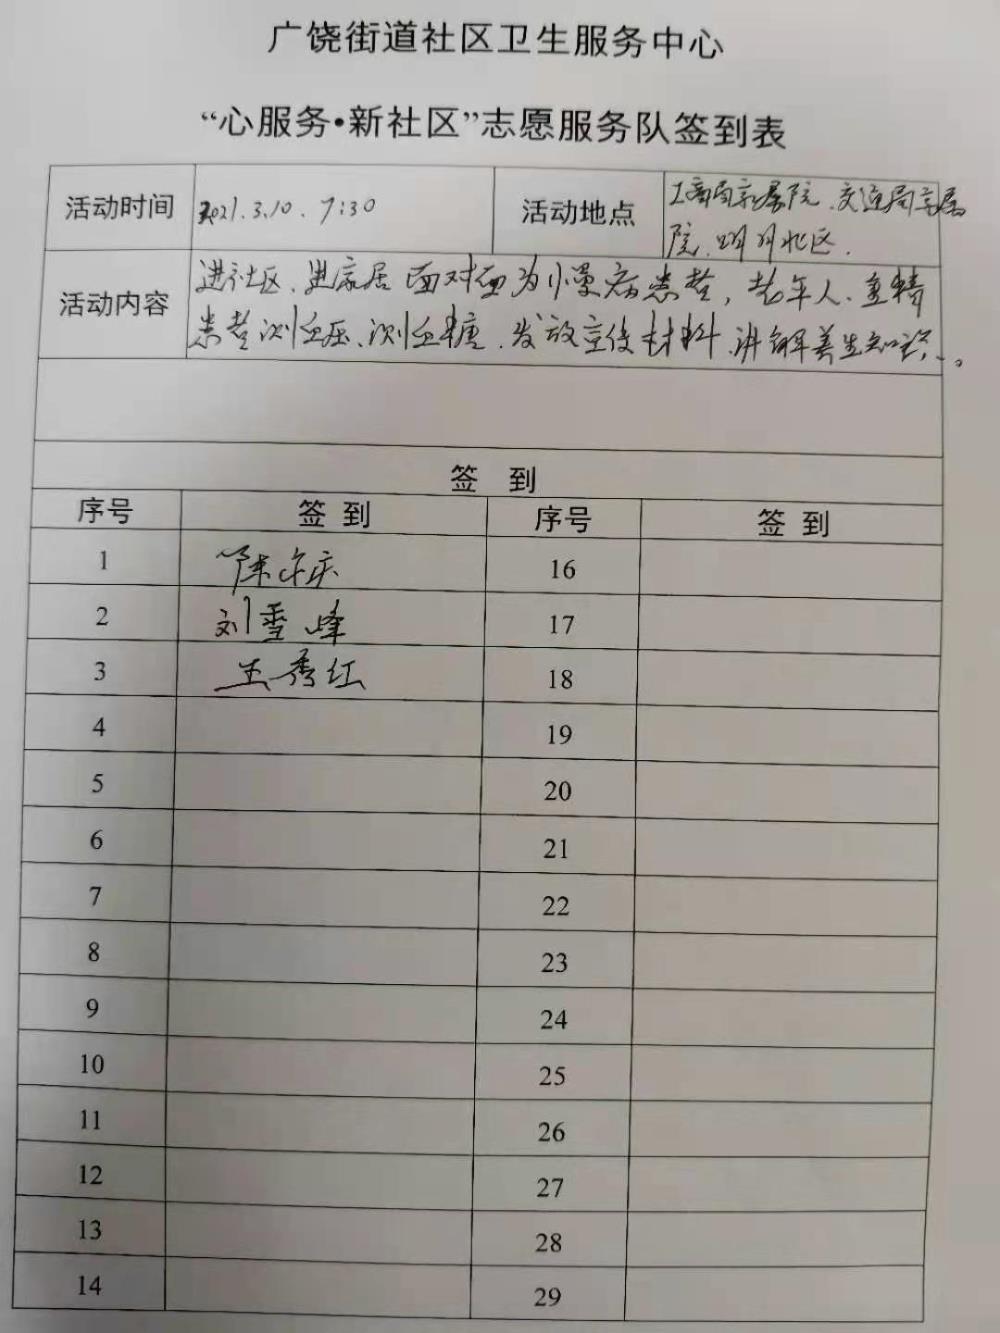 广饶街道社区卫生服务中心
“心服务•新社区”志愿服务队签到表
活动时间 2021.3.10. 7:30 活动地点 工商局家属院、交通局家属
院、明月北区.
活动内容 进社区、进家居 面对面为慢病患者,老年人、重精
患者测血压、测血糖、发放宣传材料、讲解养生知识、。
签 到
序号 签 到 序号 签 到
1 陈 庆 16
2 刘雪峰 17
3 王秀红 18
4 19
5 20
6 21
7 22
8 23
9 24
10 25
11 26
12 27
13 28
14 29